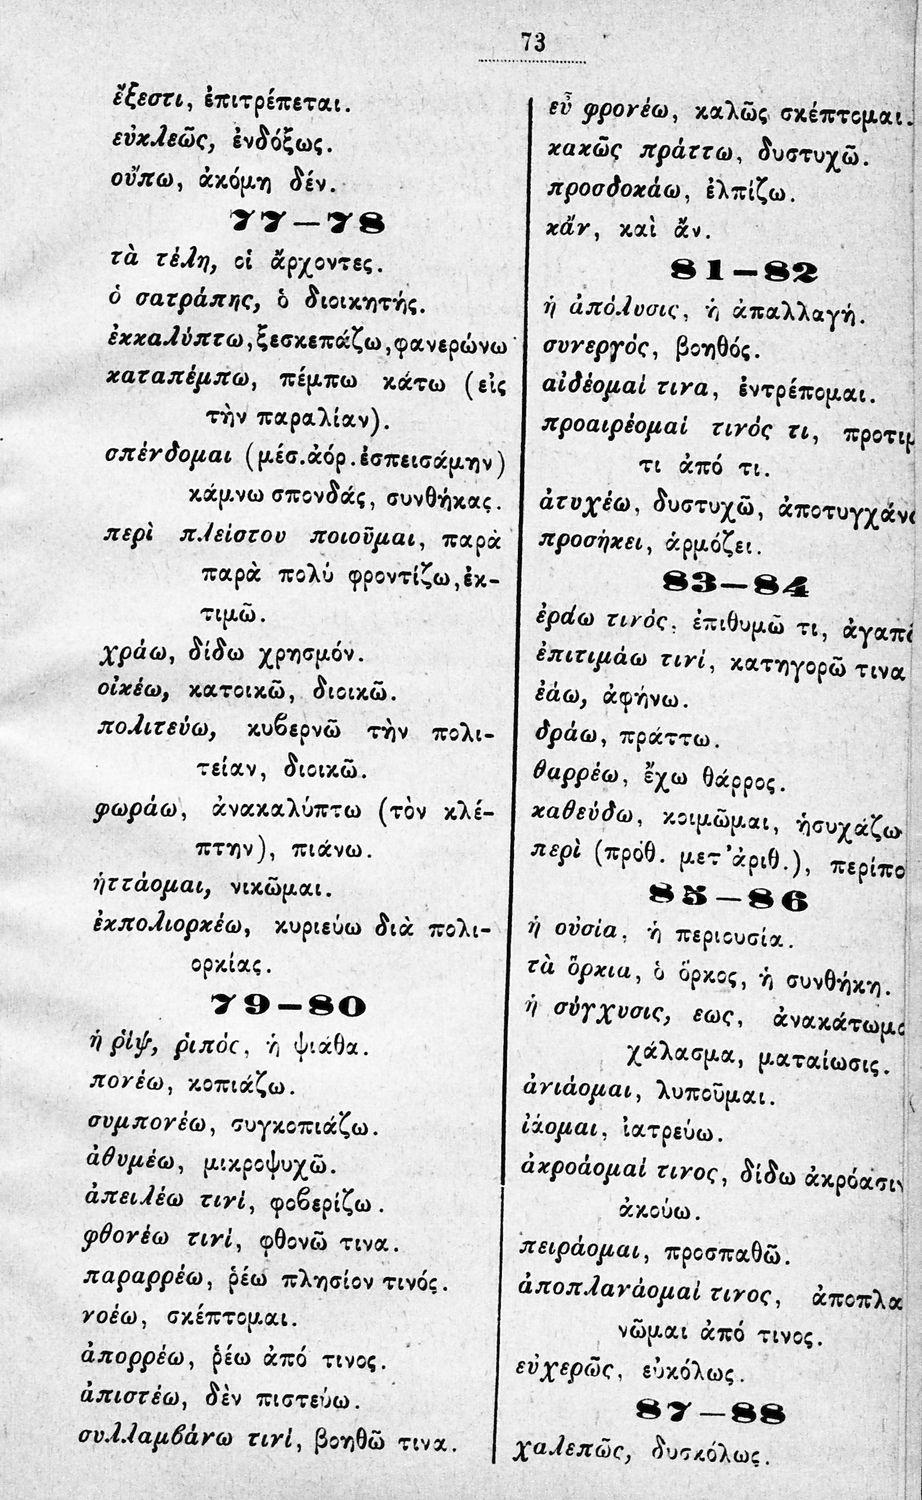 73
ἔξεστι, ἐπιτρέπεται.
εὐκλεῶς, ἐνδόξως.
οὔπω, ἀκόμη δέν.
77—78
τὰ τέλη, οἱ ἄρχοντες.
ὁ σατράπης, ὁ διοικητής.
ἐκκαλύπτω, ξεσκεπάζω, φανερώνω
καταπέμπω, πέμπω κάτω (εἰς
τὴν παραλίαν).
σπένδομαι (μέσ. ἀόρ. ἐσπεισάμην)
κάμνω σπονδάς, συνθήκας.
περὶ πλείστου ποιοῦμαι, παρὰ
παρὰ πολύ φροντίζω, ἐκ-
τιμῶ.
χράω, δίδω χρησμόν.
οἰκέω, κατοικῶ, διοικῶ.
πολιτεύω, κυβερνῶ τὴν πολι-
τείαν, διοικῶ.
φωράω, ἀνακαλύπτω (τὸν κλέ-
πτην), πιάνω.
ἡττάομαι, νικῶμαι.
ἐκπολιορκέω, κυριεύω διὰ πολι-
ορκίας.
79—80
ἡ ῥίψ, ῥιπός, ἡ ψιάθα.
πονέω, κοπιάζω.
συμπονέω, συγκοπιάζω.
ἀθυμέω, μικροψυχῶ.
ἀπειλέω τινί, φοβερίζω.
φθονέω τινί, φθονῶ τινα.
παραρρέω, ῥέω πλησίον τινός.
νοέω, σκέπτομαι.
ἀπορρέω, ῥέω ἀπό τινος.
ἀπιστέω, δὲν πιστεύω.
συλλαμβάνω τινί, βοηθῶ τινα.
εὖ φρονέω, καλῶς σκέπτομαι.
κακῶς πράττω, δυστυχῶ.
προσδοκάω, ἐλπίζω.
κἄν, καὶ ἄν.
81—82
ἡ ἀπόλυσις, ἡ ἀπαλλαγή.
συνεργός, βοηθός.
αἰδέομαί τινα, ἐντρέπομαι.
προαιρέομαί τινός τι, προτιμ
τι ἀπό τι.
ἀτυχέω, δυστυχῶ, ἀποτυγχάν
προσήκει, ἁρμόζει.
83—84
ἐράω τινός, ἐπιθυμῶ τι, ἀγαπ
ἐπιτιμάω τινί, κατηγορῶ τινα
ἐάω, ἀφήνω.
δράω, πράττω.
θαρρέω, ἔχω θάρρος.
καθεύδω, κοιμῶμαι, ἡσυχάζω
περὶ (πρόθ. μετ' ἀριθ.), περίπο
85—86
ἡ οὐσία, ἡ περιουσία.
τὰ ὅρκια, ὁ ὅρκος, ἡ συνθήκη.
ἡ σύγχυσις, εως, ἀνακάτωμ
χάλασμα, ματαίωσις.
ἀνιάομαι, λυποῦμαι.
ἰάομαι, ἰατρεύω.
ἀκροάομαί τινος, δίδω ἀκρόασι
ἀκούω.
πειράομαι, προσπαθῶ.
ἀποπλανάομαί τινος, ἀποπλα
νῶμαι ἀπό τινος.
εὐχερῶς, εὐκόλως.
87—88
χαλεπῶς, δυσκόλως.